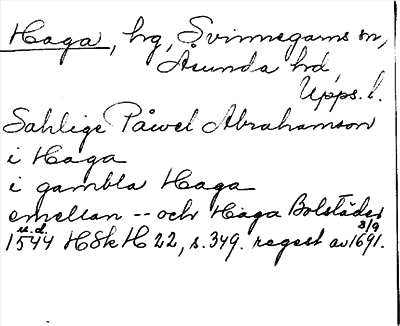 Haga, hg, Svinnegarns sn,
Åsunda hd,
Upps. l.
Sahlige Påwel Abrahamson
i Haga
i gambla Haga
emellan -- och Haga Bolstäder
u.d.
1544 HSk H 22, s. 349. regest av 3/9 1691.